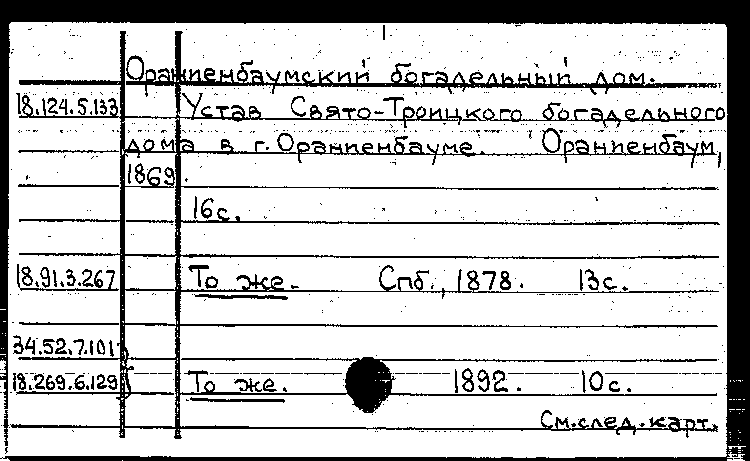 Ораниенбаумский богадельный дом.
18.124.5.133 Устав Свято-Троицкого богадельного
дома в г. Ораниенбауме. Ораниенбаум,
1869.
16с.
18.91.3.267 То же. Спб., 1878. 13с.
34.52.7.101
18.269.6.129 То же. 1892. 10с.
См. след. карт.